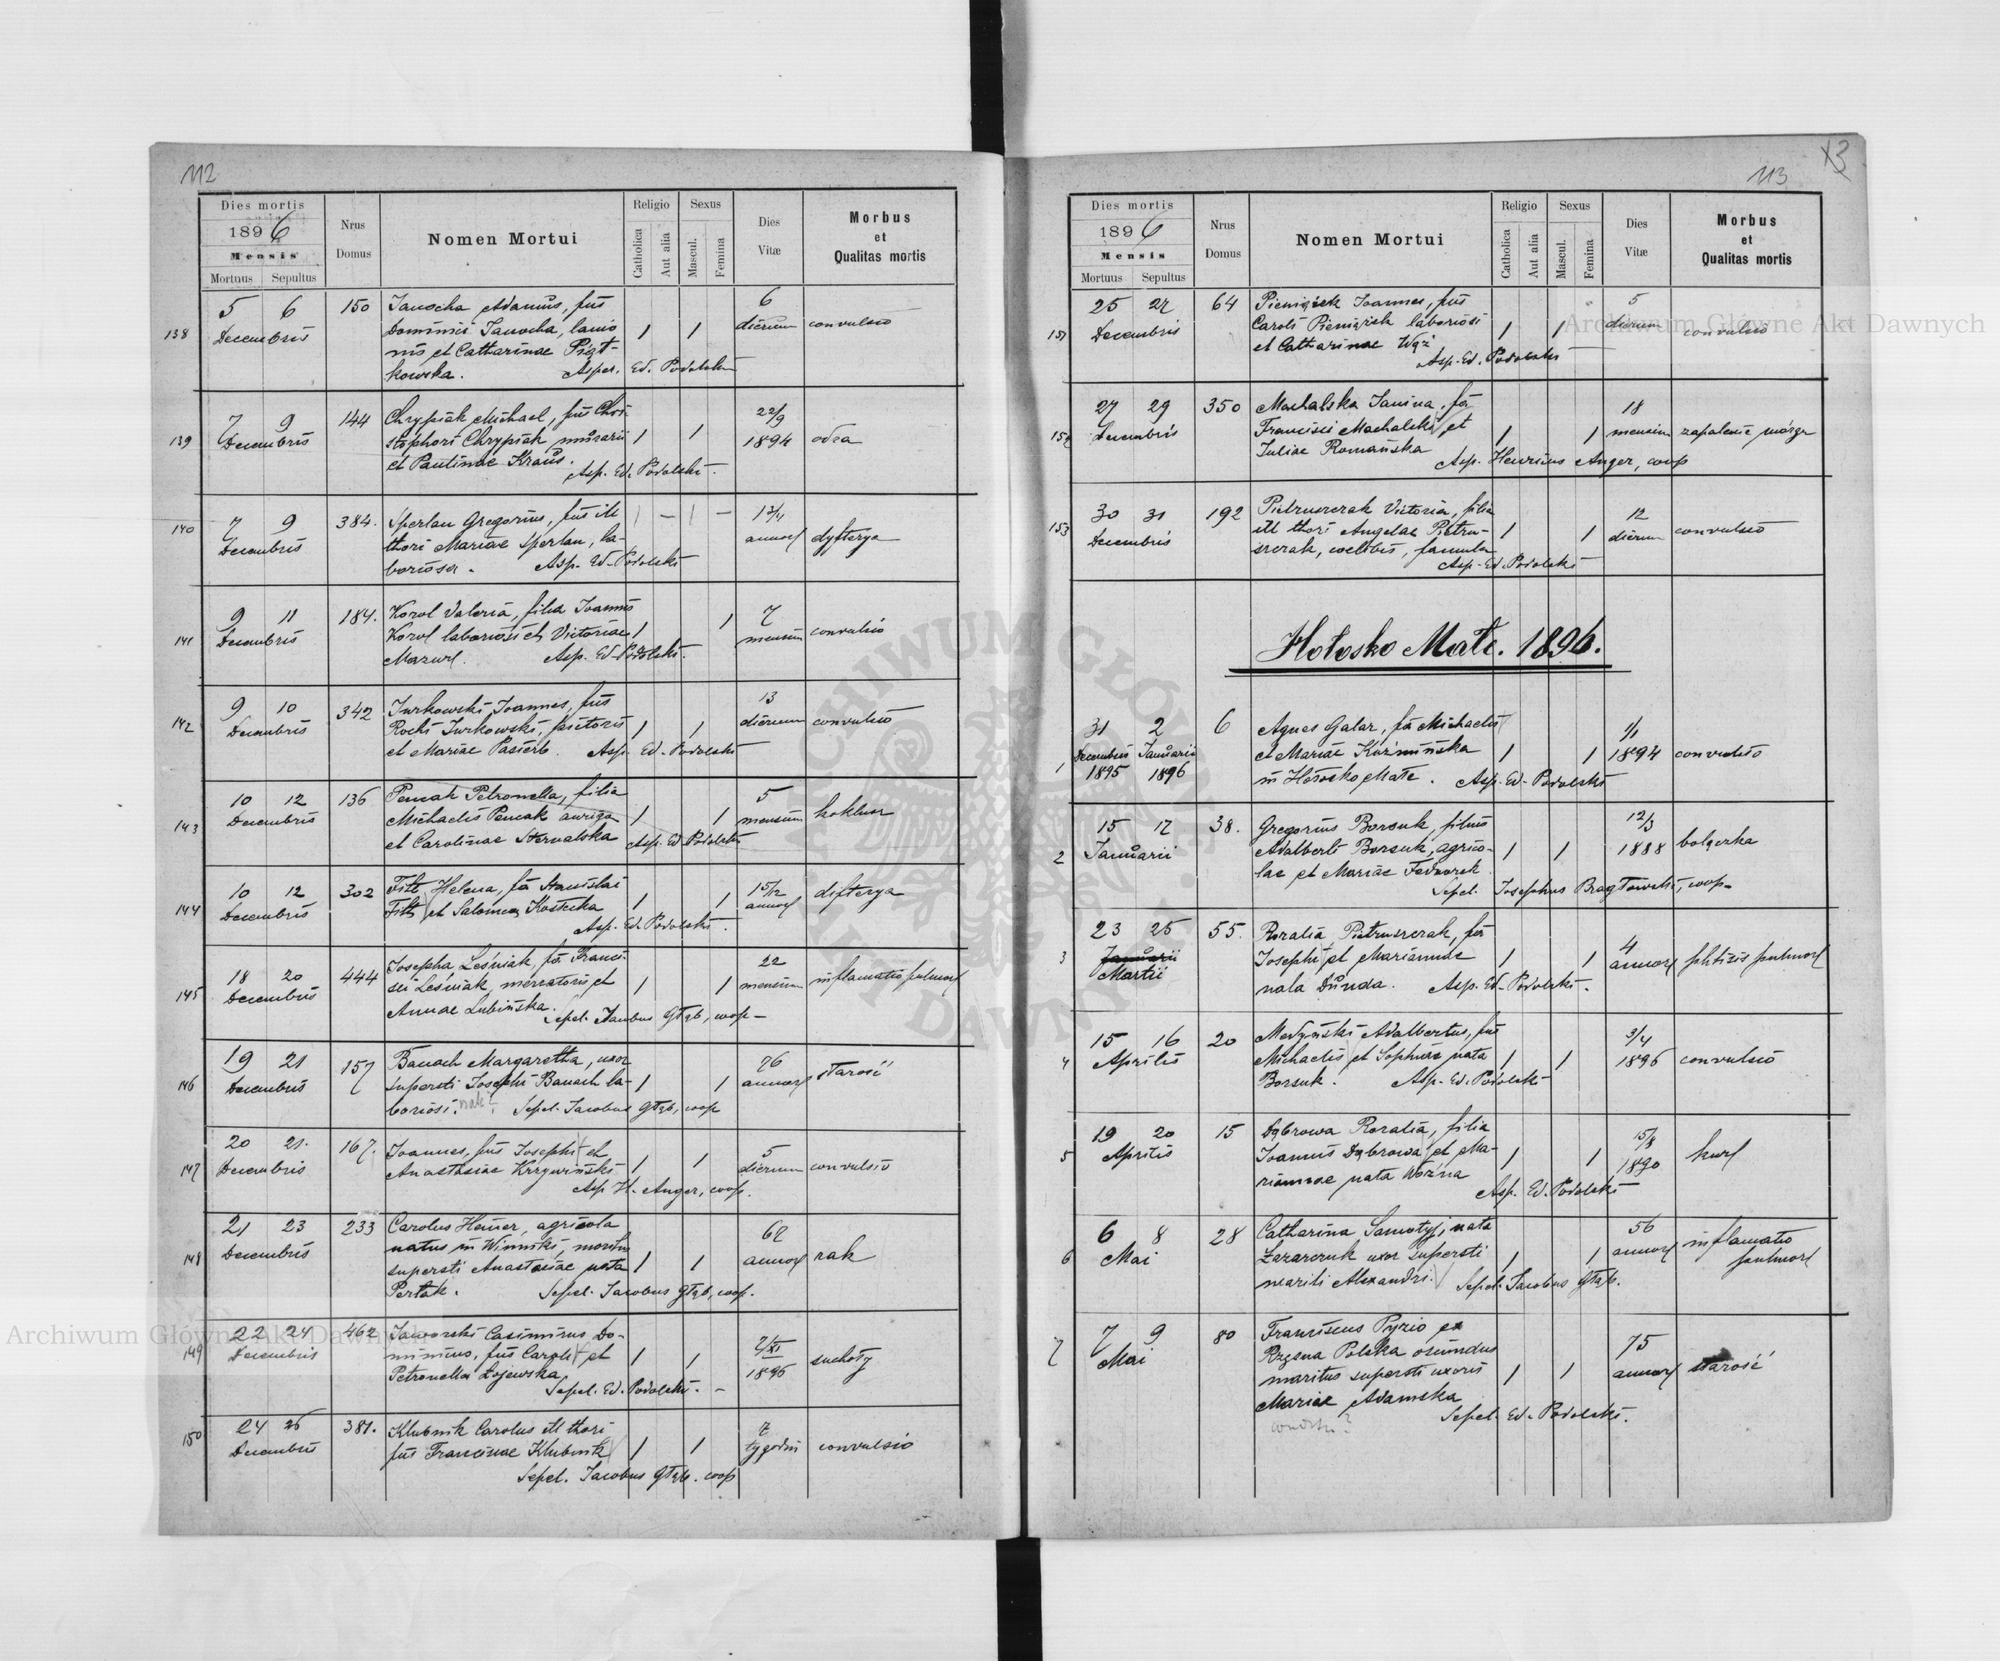 112
Dies mortis
1896
Mensis
Mortuus Sepultus
Nrus
Domus
Nomen Mortui
Religio
Catholica
Aut alia
Sexus
Mascul.
Femina
Dies
Vitæ
Morbus
et
Qualitas mortis
138
5 6
Decembris
150
Janocha Adamus, fus
Dominici Janocha, lanio
nis et Catharinae Piąt-
kowska. Asper. Ed. Podolski
6
dierum convulsio
139
7 9
Decembris
144
Chrypiak Michael, fus Chri
stophori Chrypiak murarii
et Paulinae Kraus.
Asp. Ed. Podolski.
22/9
1894 odra
140
7 9
Decembris
384.
Sperlan Gregorius, fus ille
thori Mariae Sperlan, la-
boriosa. Asp. Ed. Podolski
annor dyfterya
141
9 11
Decembris
184.
Korol Valeria, filia Joannis
Korol laboriosi et Victoriae
Mazur. Asp. Ed. Podolski.
7
mensium convulsio
142
9 10
Decembris
342
Jurkowski Joannes, fus
Rochi Jurkowski, pictoris
et Mariae Pasierb. Asp. Ed. Podolski
13
dierum convulsio
143
10 12
Decembris
136
Pencak Petronella, filia
Michaelis Pencak auriga
et Carolinae Sternalska Asp. Ed Podolski
5
mensium koklusz
144
10 12
Decembris
302
Filt Helena, fa Stanislai
Filt et Salomea Kostecka
Asp. Ed. Podolski.
15/12
annor difterya
145
18 20
Decembris
444
Josepha Leśniak, fa Franci-
sci Leśniak, mercatoris et
Annae Lubińska.
Sepel. Jacobus Głąb, coop-
22
mensium inflamatio pulmor
146
19 21
Decembris
157
Banach Margaretha, uxor
supersti Josephi Banach la-
boriosi. nat? Sepel. Jacobus Głąb, coop
76
annor starość
147
20 21.
Decembris
167.
Joannes, fus Josephi et
Anastasiae Krzywiński
Asp. H. Anger, coop.
5
dierum convulsio
148
21 23
Decembris
233
Carolus Heiner, agricola
natus in Winniki, maritus
supersti Anastasiae nata
Perłak. Sepel. Jacobus Głąb, coop.
62
annor rak
149
22 24
Decembris
462
Jaworski Casimirus Do-
minicus, fus Caroli et
Petronella Łojewska
Sepel. Ed. Podolski. -
2/XI
1896 suchoty
150
24 26
Decembris
381.
Klubnik Carolus ill thori
fus Franciscae Klubnik
Sepel. Jacobus Głąb. coop
7
tygodni convulsio
113
Dies mortis
1896
Mensis
Mortuus Sepultus
Nrus
Domus
Nomen Mortui
Religio
Catholica
Aut alia
Sexus
Mascul.
Femina
Dies
Vitæ
Morbus
et
Qualitas mortis
151
25 27
Decembris
64
Pieniążek Joannes, fus
Caroli Pieniążek laboriosi
et Catharinae Wąż
Asp. Ed. Podolski
5
dierum convulsio
152
27 29
Decembris
350
Machalska Janina, fa
Francisci Machalski et
Juliae Romańska
Asp. Henricus Anger, coop
18
mensium zapalenie mózgu
153
30 31
Decembris
192
Pietruszczak Victoria, filia
ill thori Angelae Pietru-
szczak, coelebis, famula
Asp. Ed. Podolski
12
dierum convulsio
Hołosko Małe. 1896.
1
31 2
Decembris Januarii
1895 1896
6
Agnes Galar, fa Michaelis
et Mariae Kuźmińska
in Hołosko Małe. Asp. Ed. Podolski
1/1
1894 convulsio
2
15 17
Januarii
38.
Gregorius Borsuk, filius
Adalberti Borsuk, agrico-
lae et Mariae Fedworek
Sepel. Josephus Bragłowski, coop-
12/3
1888 bolączka
3
23 25
Januarii
Martii
55.
Rozalia Pietruszczak, fa
Josephi et Mariannae
nata Dunda. Asp. Ed. Podolski.
4
annor phtisis pulmor
4
15 16
Aprilis
20
Medyński Adalbertus, fus
Michaelis et Sophiae nata
Borsuk. Asp. Ed. Podolski
3/4
1896 convulsio
5
19 20
Aprilis
15
Dąbrowa Rozalia, filia
Joannis Dąbrowa et Ma-
riannae nata Woźna
Asp. Ed. Podolski
15/8
1890 kur
6
6 8
Mai
28
Catharina Samotyj, nata
Łazarczuk uxor supersti
mariti Alexandri. Sepel. Jacobus Głąb.
56
annor inflamatio
pulmor
7
7 9
Mai
80
Franciscus Pyzio ex
Rzęsna Polska oriundus
maritus supersti uxoris
Mariae Adamska
Sepel. Ed. Podolski.
75
annor starość
Archiwum Główne Akt Dawnych
Archiwum Główne Akt Dawnych